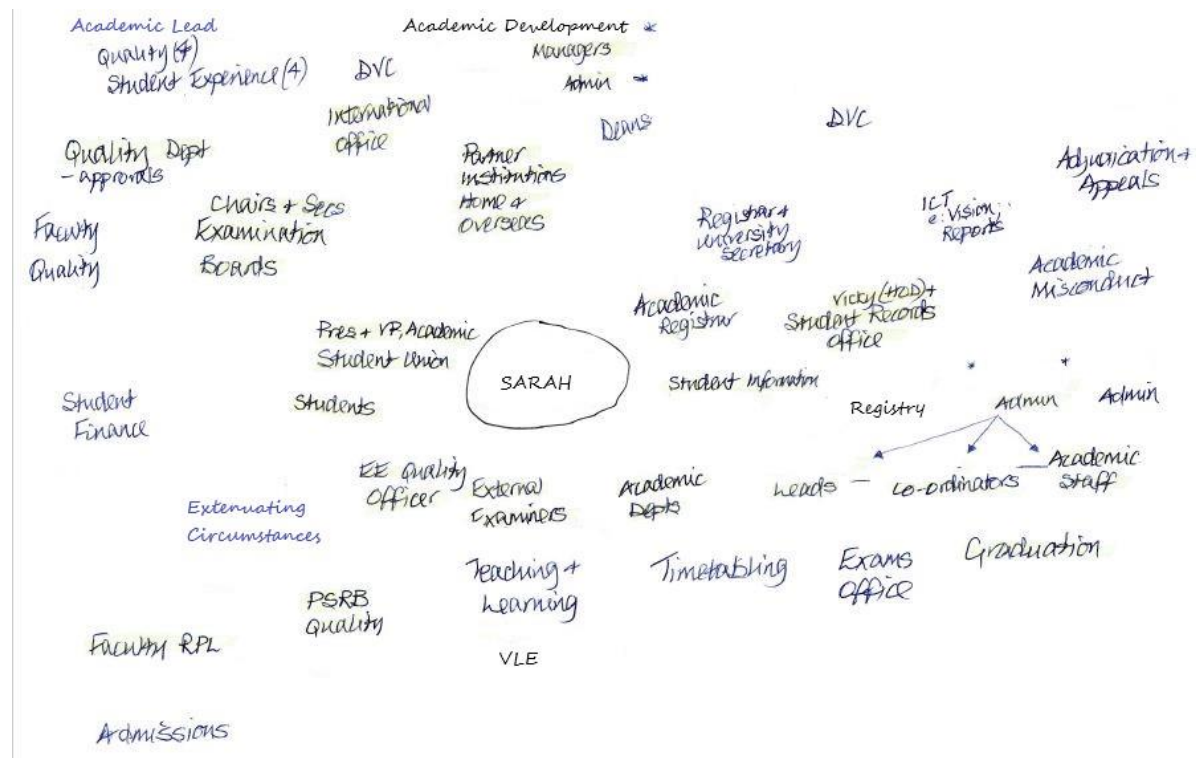 Academic Lead
Quality (4)
Student Experience (4)
DVC
International
Office
Academic Development *
Managers
Admin *
Deans
DVC
Quality Dept
- approvals
Partner
institutions
Home +
overseas
Adjudication +
Appeals
Chairs + Secs
Examination
Boards
Faculty
Quality
Registrar +
University
Secretary
ICT
e:Vision
Reports
Academic
Misconduct
Academic
Registrar
Vicky (HOD) +
Student Records
Office
Pres + VP, Academic
Student Union
SARAH
Student Information
Student
Finance
Students
Registry
*
Admin
*
Admin
EE Quality
Officer
External
Examiners
Academic
Depts
Leads — Co-ordinators — Academic
Staff
Extenuating
Circumstances
Teaching +
Learning
Timetabling
Exams
Office
Graduation
PSRB
Quality
Faculty RPL
VLE
Admissions